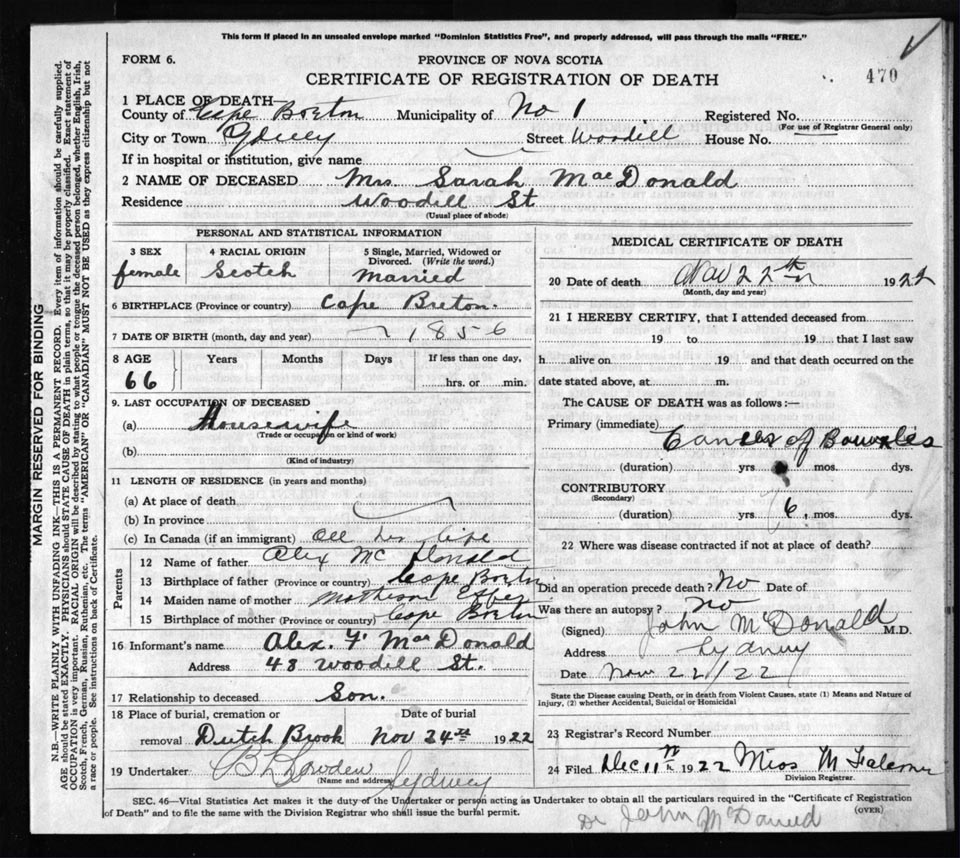 This form if placed in an unsealed envelope marked "Dominion Statistics Free", and properly addressed, will pass through the mails "FREE."
FORM 6.
PROVINCE OF NOVA SCOTIA
CERTIFICATE OF REGISTRATION OF DEATH
470
1 PLACE OF DEATH—
County of Cape Breton Municipality of No 1 Registered No.
(For use of Registrar General only)
City or Town Sydney Street Woodill House No.
If in hospital or institution, give name
2 NAME OF DECEASED Mrs Sarah MacDonald
Residence Woodill St
(Usual place of abode)
PERSONAL AND STATISTICAL INFORMATION
3 SEX 4 RACIAL ORIGIN 5 Single, Married, Widowed or Divorced. (Write the word.)
female Scotch Married
6 BIRTHPLACE (Province or country) Cape Breton.
7 DATE OF BIRTH (month, day and year) 1856
8 AGE Years Months Days If less than one day,
66 hrs. or min.
9. LAST OCCUPATION OF DECEASED
(a) Housewife
(Trade or occupation or kind of work)
(b)
(Kind of industry)
11 LENGTH OF RESIDENCE (in years and months)
(a) At place of death
(b) In province
(c) In Canada (if an immigrant) all her life
Parents
12 Name of father Alex McDonald
13 Birthplace of father (Province or country) Cape Breton
14 Maiden name of mother Matheson
15 Birthplace of mother (Province or country) Cape Breton
16 Informant's name Alex. F. MacDonald
Address 48 Woodill St.
17 Relationship to deceased Son.
18 Place of burial, cremation or removal Date of burial
Dutch Brook Nov 24th 1922
19 Undertaker Sydney
(Name and address)
MEDICAL CERTIFICATE OF DEATH
20 Date of death Nov 22th 1922
(Month, day and year)
21 I HEREBY CERTIFY, that I attended deceased from
19 to 19 that I last saw
h alive on 19 and that death occurred on the
date stated above, at m.
The CAUSE OF DEATH was as follows:—
Primary (immediate)
Cancer of Bowels
(duration) yrs mos. dys.
CONTRIBUTORY
(Secondary)
(duration) yrs 6. mos. dys.
22 Where was disease contracted if not at place of death?
Did an operation precede death? No Date of
Was there an autopsy? No
(Signed) John McDonald M.D.
Address Sydney
Date Nov 22/22
State the Disease causing Death, or in death from Violent Causes, state (1) Means and Nature of
Injury, (2) whether Accidental, Suicidal or Homicidal
23 Registrar's Record Number
24 Filed Dec 11th 1922 Miss M
Division Registrar.
SEC. 46—Vital Statistics Act makes it the duty of the Undertaker or person acting as Undertaker to obtain all the particulars required in the "Certificate of Registration
of Death" and to file the same with the Division Registrar who shall issue the burial permit.
(OVER)
Dr John McDonald
MARGIN RESERVED FOR BINDING
N.B.—WRITE PLAINLY WITH UNFADING INK—THIS IS A PERMANENT RECORD. Every item of information should be carefully supplied.
AGE should be stated EXACTLY. PHYSICIANS should STATE CAUSE OF DEATH in plain terms, so that it may be properly classified. Exact statement of
OCCUPATION is very important. RACIAL ORIGIN will be described by stating to what people or tongue the deceased person belonged, whether English, Irish,
Scotch, French, German, Russian, Ruthenian, etc. The terms "AMERICAN" OR "CANADIAN" MUST NOT BE USED as they express citizenship but not
a race or people. See instructions on back of Certificate.